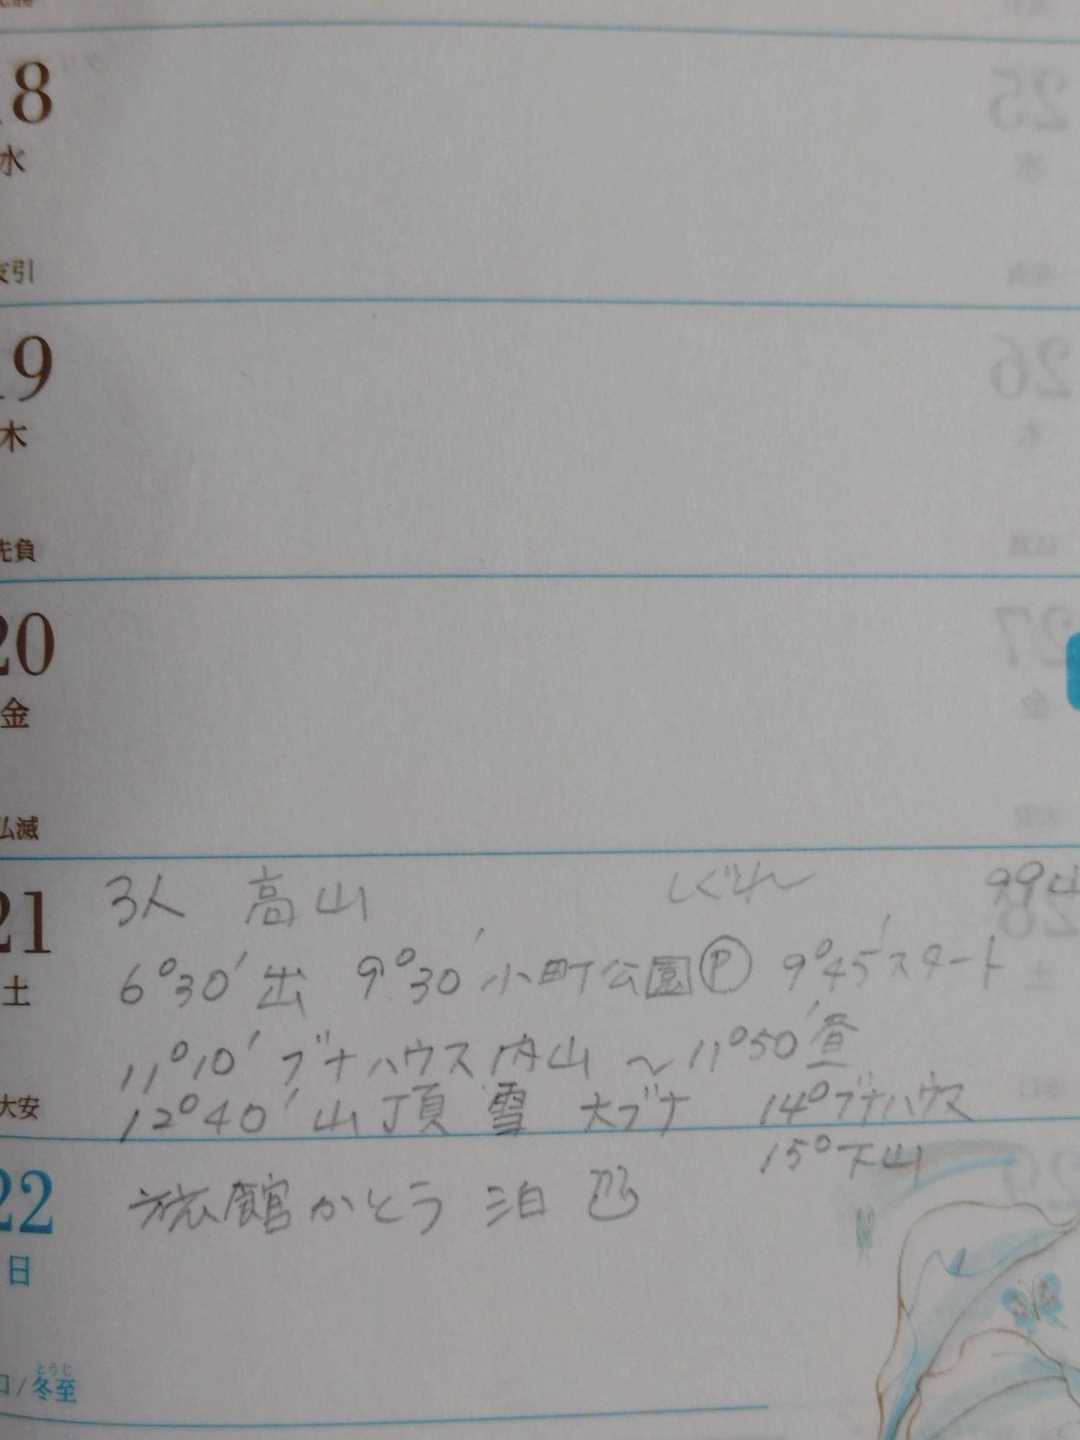 18
水
友引
19
木
先負
20
金
仏滅
21 3人 高山 しぐれ 99山
土 6°30′出 9°30′小町公園Ⓟ 9°45′スタート
11°10′ブナハウス内山 〜11°50′昼
大安 12°40′山頂 雪 大ブナ 14°ブナハウス
15°下山
22 旅館かとう 泊 ♨
日
とうじ
/冬至